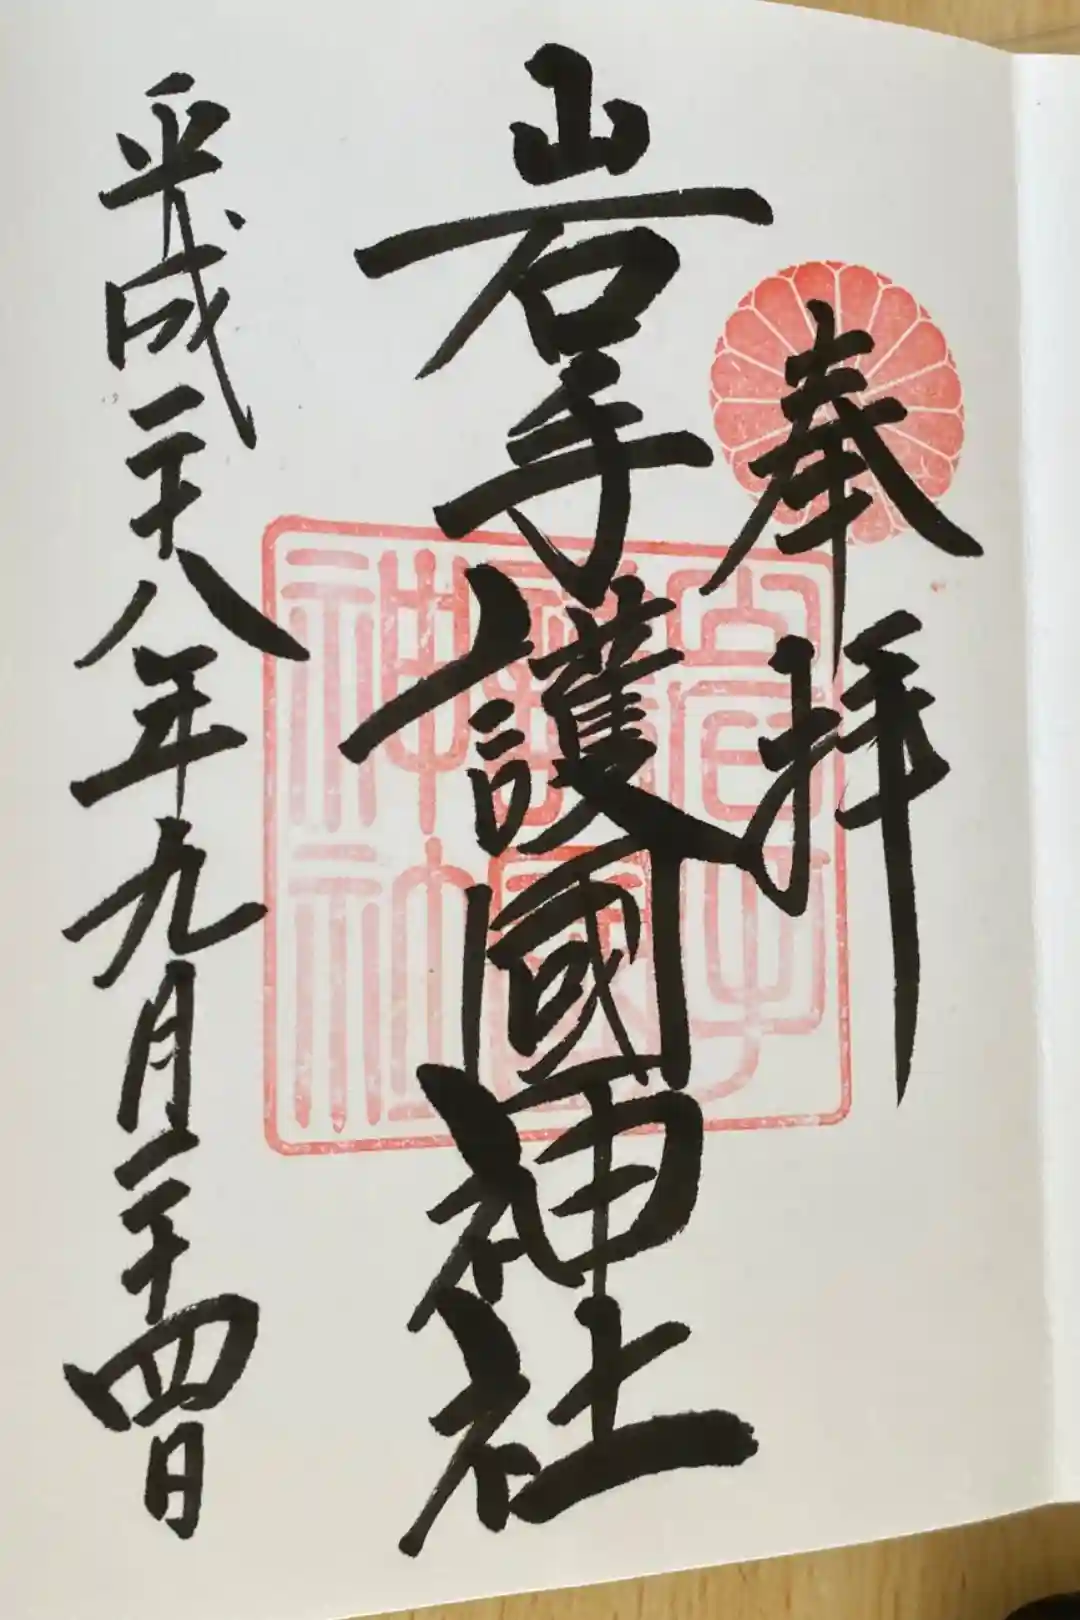 奉拝
岩手護國神社
平成二十八年九月二十四日
岩手
護國
神社